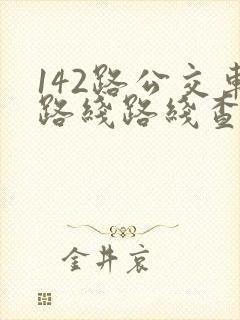 142路公交車
路綫路綫查
金井哀